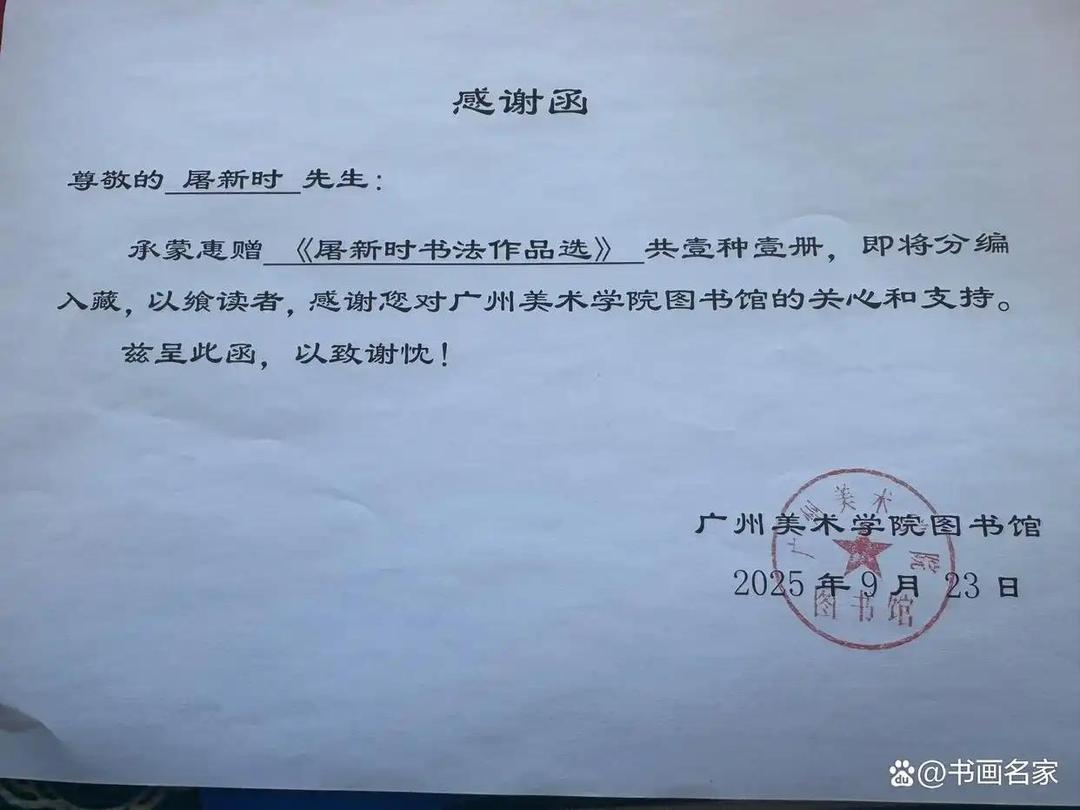 感谢函
尊敬的 屠新时 先生：
承蒙惠赠 《屠新时书法作品选》 共壹种壹册，即将分编
入藏，以飨读者，感谢您对广州美术学院图书馆的关心和支持。
兹呈此函，以致谢忱！
广州美术学院图书馆
2025年9月23日
广州美术学院
图书馆
du@书画名家